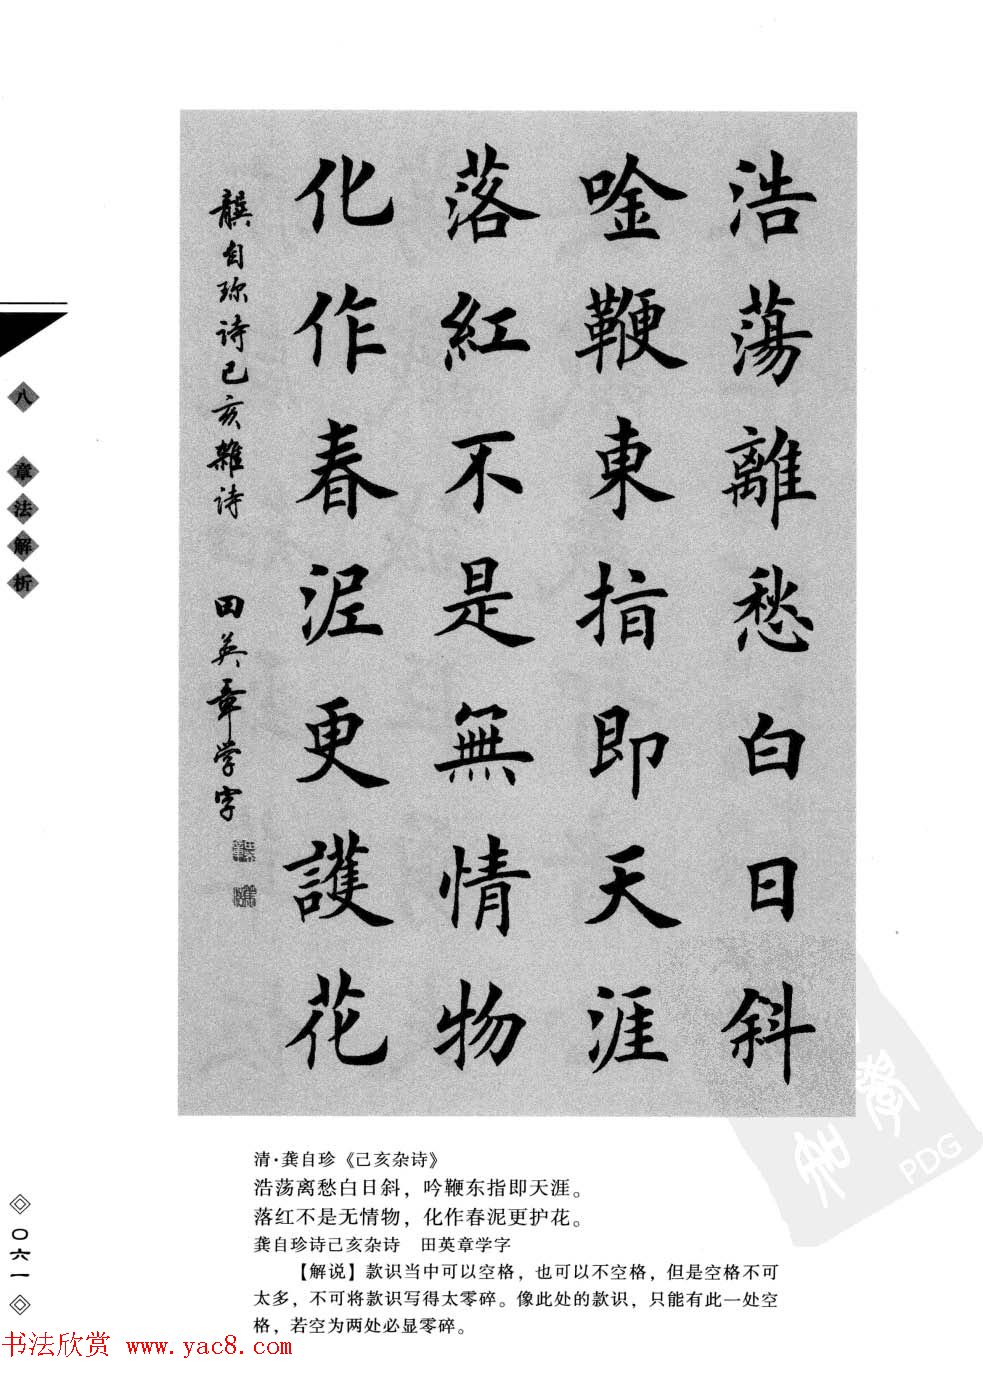 浩蕩離愁白日斜
唫鞭東指即天涯
落紅不是無情物
化作春泥更護花
龔自珍诗己亥雜诗 田英章学字
八 章法解析
清·龚自珍《己亥杂诗》
浩荡离愁白日斜，吟鞭东指即天涯。
落红不是无情物，化作春泥更护花。
龚自珍诗己亥杂诗 田英章学字
【解说】款识当中可以空格，也可以不空格，但是空格不可
太多，不可将款识写得太零碎。像此处的款识，只能有此一处空
格，若空为两处必显零碎。
〇六一
书法欣赏 www.yac8.com
PDG